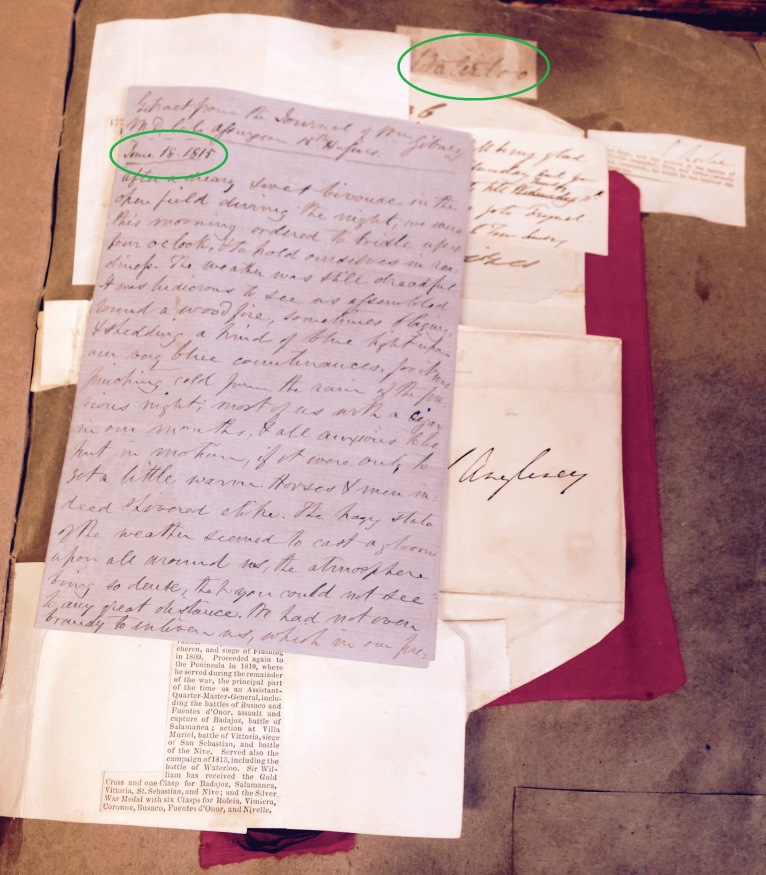 Waterloo
Extract from the Journal of Wm Gibney
M.D. late Assurgeon 15th Hussars
June 18. 1815
After a dreary & wet bivouac in the
open field during the night, we were
this morning ordered to bridle up at
four oclock, & to hold ourselves in rea-
diness. The weather was still dreadful
It was ludicrous to see us assembled
round a wood fire, sometimes blazing
& shedding a kind of blue light upon
our very blue countenances, for it was
pinching cold from the rain of the pre-
vious night; most of us with a cigar
in our mouths, & all anxious to be
put in motion, if it were only to
get a little warm. Horses & men in-
deed shivered alike. The hazy state
of the weather seemed to cast a gloom
upon all around us, the atmosphere
being so dense, that you could not see
to any great distance. We had not even
brandy to enliven us, which in our pre-
glad
Anglesey
cheren, and siege of Flushing
in 1809. Proceeded again to
the Peninsula in 1810, where
he served during the remainder
of the war, the principal part
of the time as an Assistant-
Quarter-Master-General, inclu-
ding the battles of Busaco and
Fuentes d'Onor, assault and
capture of Badajoz, battle of
Salamanca; action at Villa
Muriel, battle of Vittoria, siege
of San Sebastian, and battle
of the Nive. Served also the
campaign of 1815, including the
battle of Waterloo. Sir Wil-
liam has received the Gold
Cross and one Clasp for Badajoz, Salamanca,
Vittoria, St. Sebastian, and Nive; and the Silver
War Medal with six Clasps for Roleia, Vimiera,
Corunna, Busaco, Fuentes d'Onor, and Nivelle.